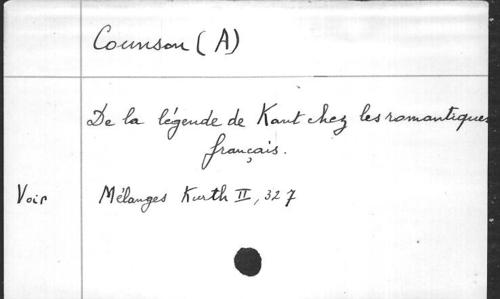 Counson (A)
De la légende de Kant chez les romantiques
français.
Voir Mélanges Kurth II, 327